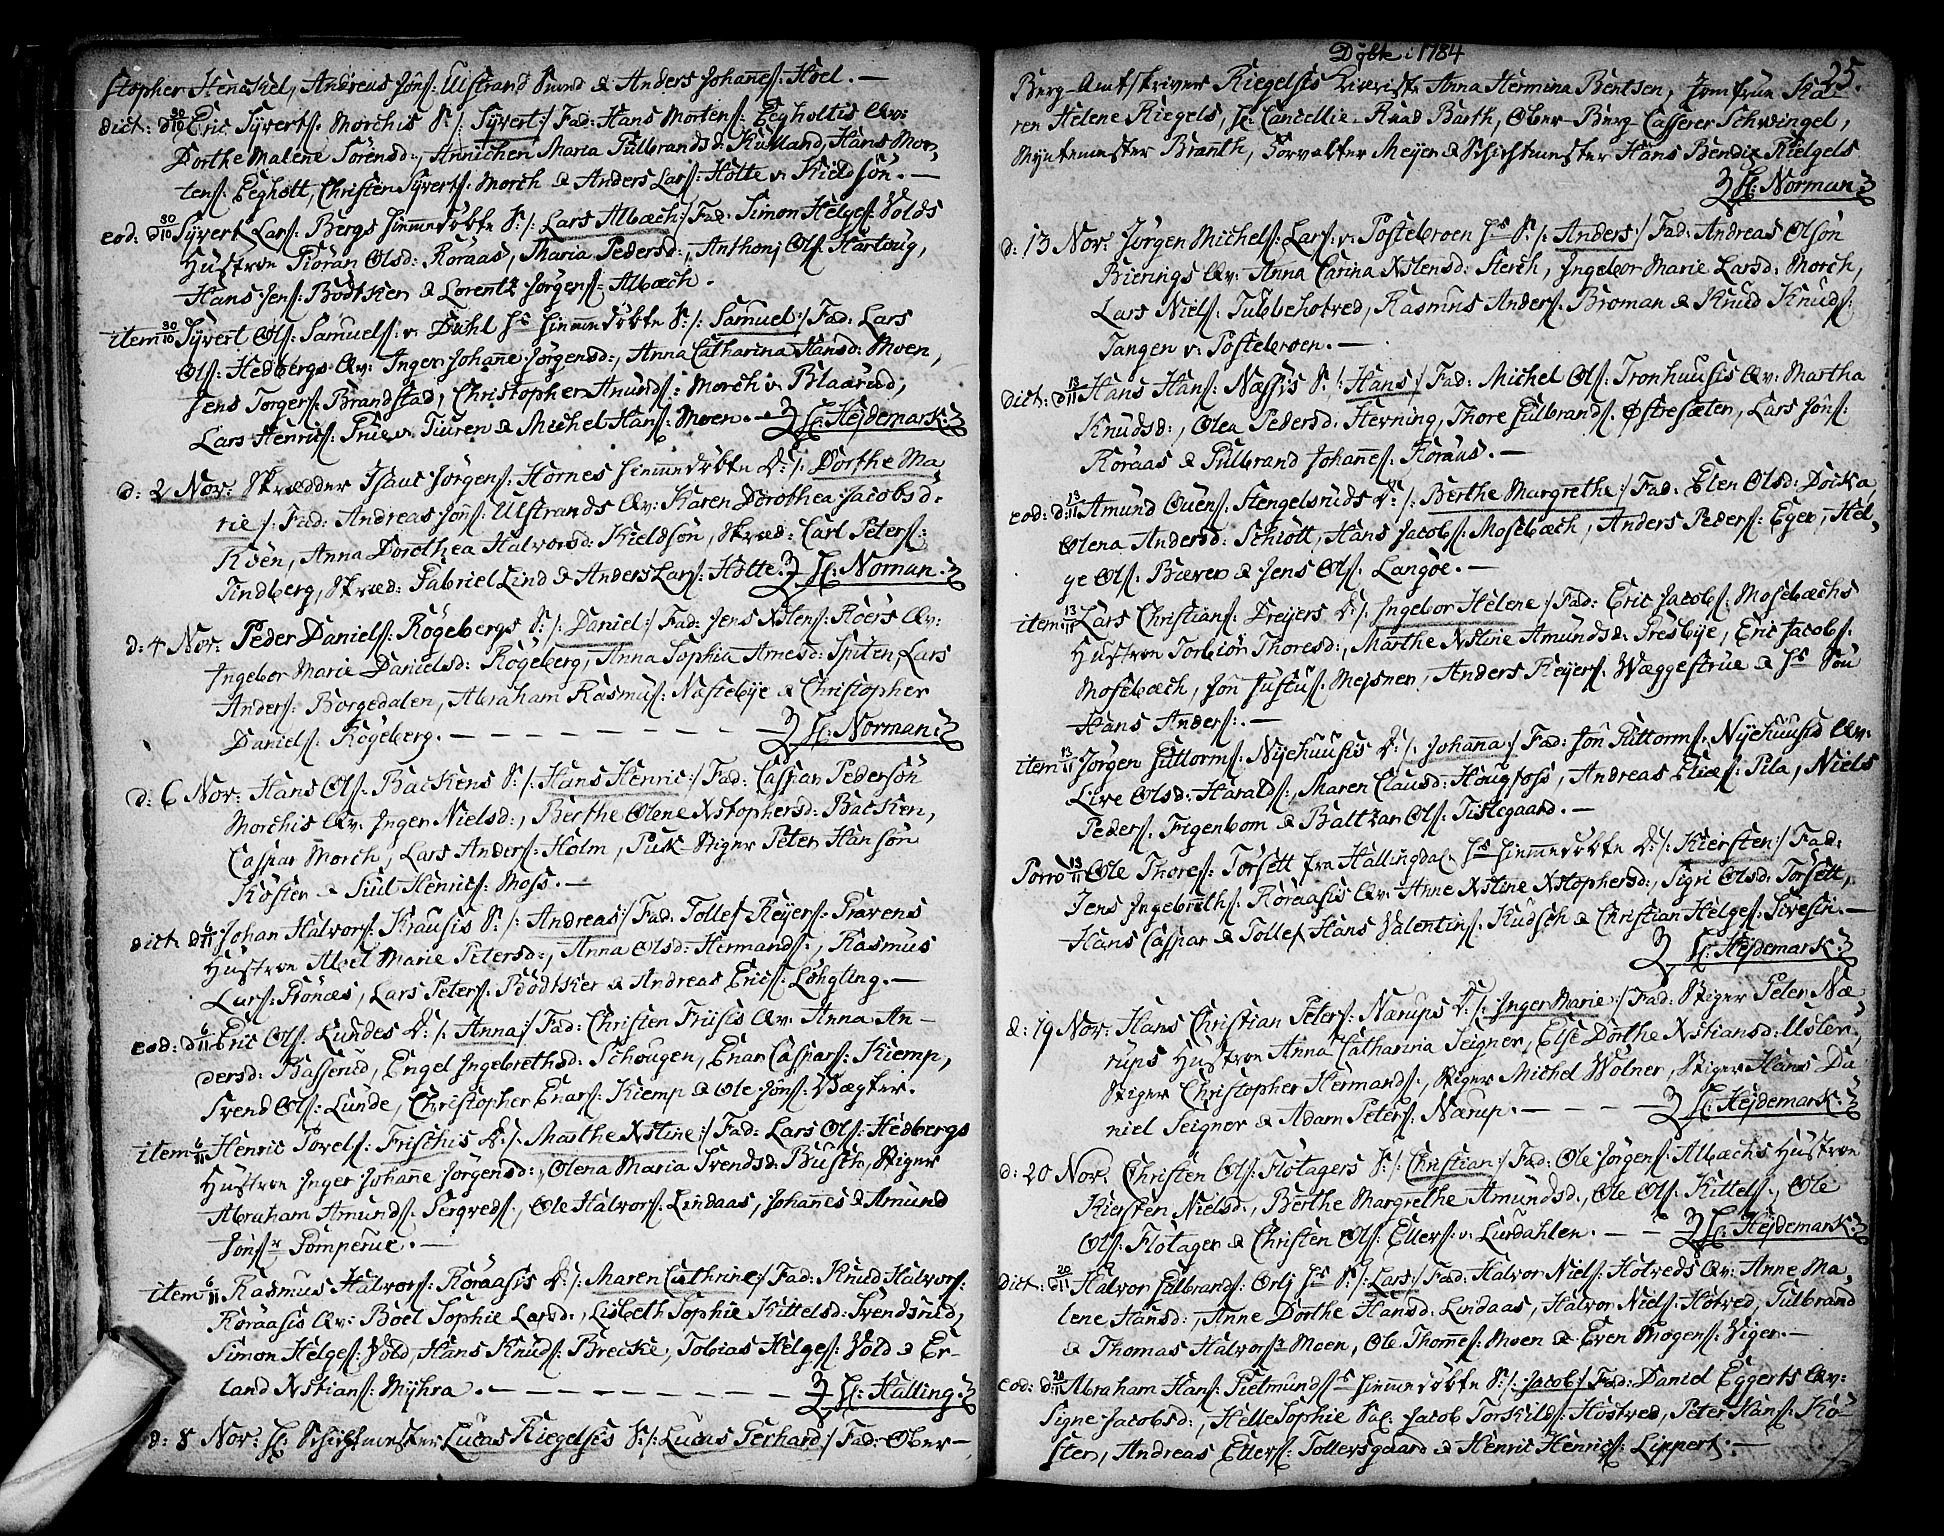 stopher Henckel, Andreas Jöns: Ulstrand Svend & Anders Johañes: Hoel. —
dict: d 30/10 Eric Syverts: Morchis S: /: Syvert :/ Fad: Hans Mortens: Eegholtis Qv:
Dorthe Malene Sörensd:, Annichen Maria Gulbrandsd: Kulland, Hans Mor-
tens: Eegholt, Christen Syverts: Morch & Anders Lars: Holte v. Kieldsön. —
eod: d 30/10 Syvert Lars: Bergs hiemmedöbte S: /: Lars Albæch :/ Fad: Simon Helges: Volds
Hustroe Giöran Olsd: Roraas, Maria Pedersd:, Anthonj Ols: Hartvig,
Hans Jens: Bödtker & Lorentz Jörgens: Albæch.
item 30/10 Syvert Ols: Samuels: v. Dahl hs hiemmedöbte S: /: Samuel :/ Fad: Lars
Ols: Hedbergs Qv: Inger Johañe Jörgensd:, Anna Catharina Hansd: Moen,
Jens Torgers: Brandstad, Christopher Anunds: Morch v. Blaarud,
Lars Henrics: True v. Tiuren & Michel Hans: Moen. — H: Hejdemark.
d: 2 Nov: Skrædder Isaac Jörgens: Hornes hiemmedöbte D: /: Dorthe Ma
rie :/ Fad: Andreas Jöns: Ulstrands Qv: Karen Dorothea Jacobsd:
Ksen, Anna Dorothea Halvorsd: Kieldsön, Skræd: Carl Peters:
Tindberg, Skræd: Gabriel Lind & Anders Lars: Holte. H: Norman.
d: 4 Nov: Peder Daniels: Rögebergs S: /: Daniel :/ Fad: Jens Xstens: Roers Qv:
Ingebor Marie Danielsd: Rögeberg, Anna Sophia Arnesd: Spiten, Lars
Anders: Borgedalen, Abraham Rasmus: Nastebye & Christopher
Daniels: Rögeberg. — — — — H: Norman.
d: 6 Nov: Hans Ols: Backens S: /: Hans Henric :/ Fad: Caspar Pedersön
Morchis Qv: Inger Nielsd:, Berthe Olene Xstophersd: Backen,
Caspar Morch, Lars Anders: Holm, Puk-Stiger Peter Hansön
Köster & Siul Henrics: Moss. —
dict. d 6/11 Johan Halvors: Krausis S: /: Andreas :/ Fad: Tollef Reyers: Gravens
Hustroe Abel Marie Petersd:, Anna Olsd: Hermands:, Rasmus
Lars: Grönæs, Lars Peters: Bödtker & Andreas Erics: Löhgling. —
eod: d 6/11 Eric Ols: Lundes D: /: Anna :/ Fad: Christen Friisis Qv: Anna An-
dersd: Basserud, Engel Ingebrethsd: Schougen, Enar Caspars: Kiemp,
Svend Ols: Lunde, Christopher Enars: Kiemp & Ole Jöns: Vægter.
item 6/11 Henric Povels: Frischis D: /: Marthe Xstine :/ Fad: Lars Ols: Hedbergs
Hustroe Inger Johañe Jörgensd:, Olena Maria Svendsd: Busch, Stiger
Abraham Amunds: Sergveds:, Ole Halvors: Lindaas, Johañes & Amund
Jönsr Gomperue. —
item 6/11 Rasmus Halvors: Roraasis D: /: Maren Cathrine :/ Fad: Knud Halvors:
Roraasis Qv: Boel Sophie Larsd:, Lisbeth Sophie Kittelsd: Svendsrud,
Simon Helges: Vold, Hans Knuds: Brecke, Tobias Helges: Vold & Er-
land Xstians: Myhra. — — — — H: Halling.
d: 8 Nov: H: Schichtmester Lucas Riegelsis S: /: Lucas Gerhard :/ Fad: Ober-
Döbte i 1784
25.
Berg-Amtskriver Riegelsis Liberiste Anna Hermina Bentsen, Jomfrue Ka-
ren Helene Riegels, H: Cancellie-Raad Barth, Ober-Berg-Casserer Schwingel,
Myntemester Branth, Forvalter Meyer & Schichtmester Hans Bendix Rielgels
H: Norman
d: 13 Nov: Jörgen Michels: Lars: v. Fostebroen hs S: /: Anders :/ Fad: Andreas Olsön
Bienings Qv: Anna Carina Xstensd: Sterch, Ingebor Marie Larsd: Morch,
Lars Niels: Tubbehotved, Rasmus Anders: Broman & Knud Knuds:
Tangen v: Fostebroen. —
dict: d 13/11 Hans Hans: Næssis S: /: Hans :/ Fad: Michel Ols: Tronhuusis Qv: Martha
Knudsd:, Olea Pedersd: Herning, Thore Gulbrands: Østresæten, Lars Jöns:
Roraas & Gulbrand Johañes: Roraas. —
eod: d: 13/11 Amund Ouens: Stengelsruds D: /: Berthe Margrethe :/ Fad: Elen Olsd: Docka,
Olena Andersd: Schiött, Hans Jacobs: Mosebæch, Anders Peders: Eger, Hel-
ge Ols: Bæver & Jens Ols: Langöe. —
item 13/11 Lars Christians: Dreyers D: /: Ingebor Helene :/ Fad: Eric Jacobs: Mosebæchs
Hustroe Torbiör Thoresd:, Marthe Xstine Amundsd: Presbye, Eric Jacobs:
Mosebæch, Jon Justus: Mejsner, Anders Reyers: Wæggestrue & hs Sön
Hans Anders:. —
item 13/11 Jörgen Guttorms: Nyehuusis D: /: Johaña :/ Fad: Jon Guttorms: Nyehuusis Qv:
Live Olsd: Haralds:, Maren Clausd: Hougfoss, Andreas Elies: Pila, Niels
Peders: Figenbom & Baltzar Ols: Tislegaard. —
Porro 13/11 Ole Thores: Törsett fra Hallingdal hs hiemmedöbte D: /: Kiersten :/ Fad:
Jens Ingebreths: Roraasis Qv: Anne Xstine Xstophersd:, Sigri Olsd: Törsett,
Hans Caspar & Tollef Hans: Valentins: Kudsch & Christian Helges: Sivesin. —
H: Hejdemark
d: 19 Nov: Hans Christian Peters: Nærups D: /: Inger Marie :/ Fad: Stiger Peter Næ-
rups Hustroe Anna Catharina Seigner, Else Dorthe Xstiansd: Usler,
Stiger Christopher Hermands:, Stiger Michel Wolner, Stiger Hans Da
niel Seigner & Adam Peters: Nærup. — — — H: Hejdemark.
d: 20 Nov. Christen Ols: Flotagers S: /: Christian :/ Fad: Ole Jörgens: Albæchs Hustroe
Kiersten Nielsd:, Berthe Margrethe Amundsd:, Ole Ols: Kittels:, Ole
Ols: Flotager & Christen Ols: Ellers: v. Lurdahlen. — — H: Hejdemark.
Dict: d 20/11 Halvor Gulbrands: Orlj hs S: /: Lars :/ Fad: Halvor Niels: Hotveds Qv: Anne Ma,
lene Hansd:, Anne Dorthe Hansd: Lindaas, Halvor Niels: Hotved, Gulbrand
& Thomas Halvorsr Moen, Ole Thomes: Moen & Even Mogens: Viger. —
eod: d: 20/11 Abraham Hans: Gielmunds hiemmedöbte S: /: Jacob :/ Fad: Daniel Eggerts Qv:
Signe Jacobsd:, Helle Sophie Sal: Jacob Torkilds: Hostved, Peter Hans: Kö-
ster, Andreas Ellers: Tollersgaard & Henric Henrics: Lippert. —